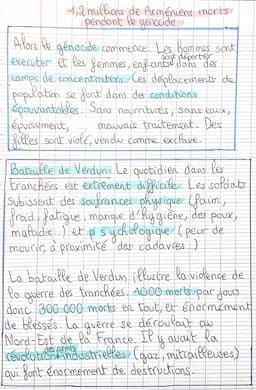 1,2 millions de Arméniens morts
pendant le génocide
Alors le génocide commence. Les hommes sont
executer et les femmes, enfants sont déporter dans des
camps de concentration. Ces déplacements de
population se font dans des conditions
épouvantables. Sans nourritures, sans eaux,
épuisement, mauvais traitement. Des
filles sont violé, vendu comme esclave.
Bataille de Verdun: Le quotidien dans les
tranchées est extrement difficile. Les soldats
subissent des soufrances physique (faim,
froid, fatigue, manque d'hygiène, des poux,
maladie...) et psychologique (peur de
mourir, à proximité des cadavres...)
La bataille de Verdun illustre la violence de
la guerre des tranchées. 1000 morts par jour
donc 300 000 morts en tout, et énormément
de blessés. La guerre se déroulait au
Nord-Est de la France. Il y avait la
révolution des armes industrielles (gaz, mitrailleuses)
qui font énormement de destructions.